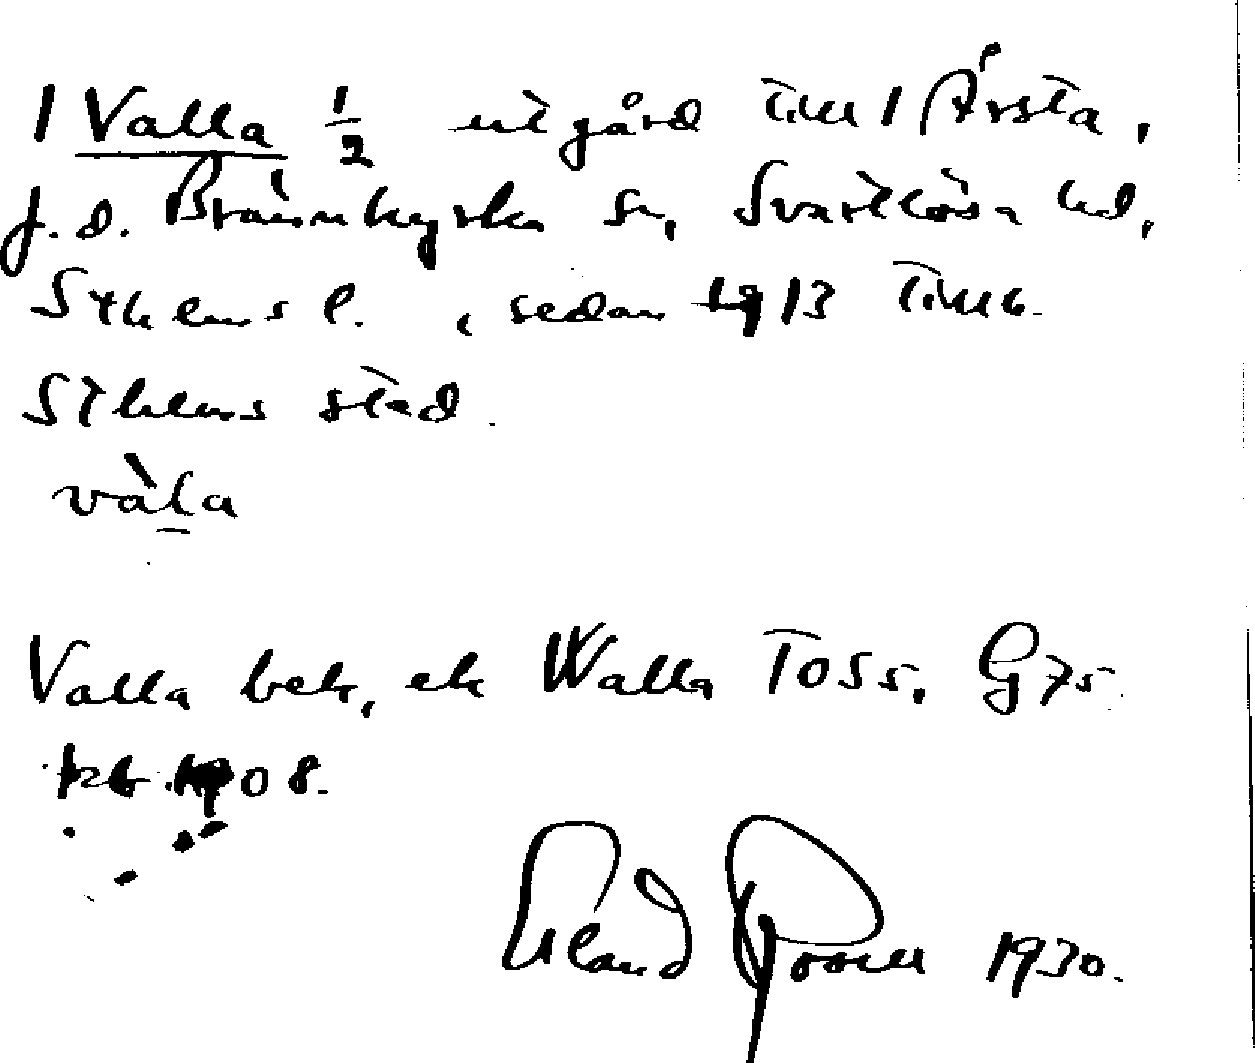 1 Valla 1/2 utgård till 1 Årsta,
f.d. Brännkyrka sn, Svartlösa hd,
Sthlms l. , sedan 1913 till
Sthlms stad.
våla
Valla bek, ek Walla Toss. G 75.
kb 1908.
Erland Rosell 1930.